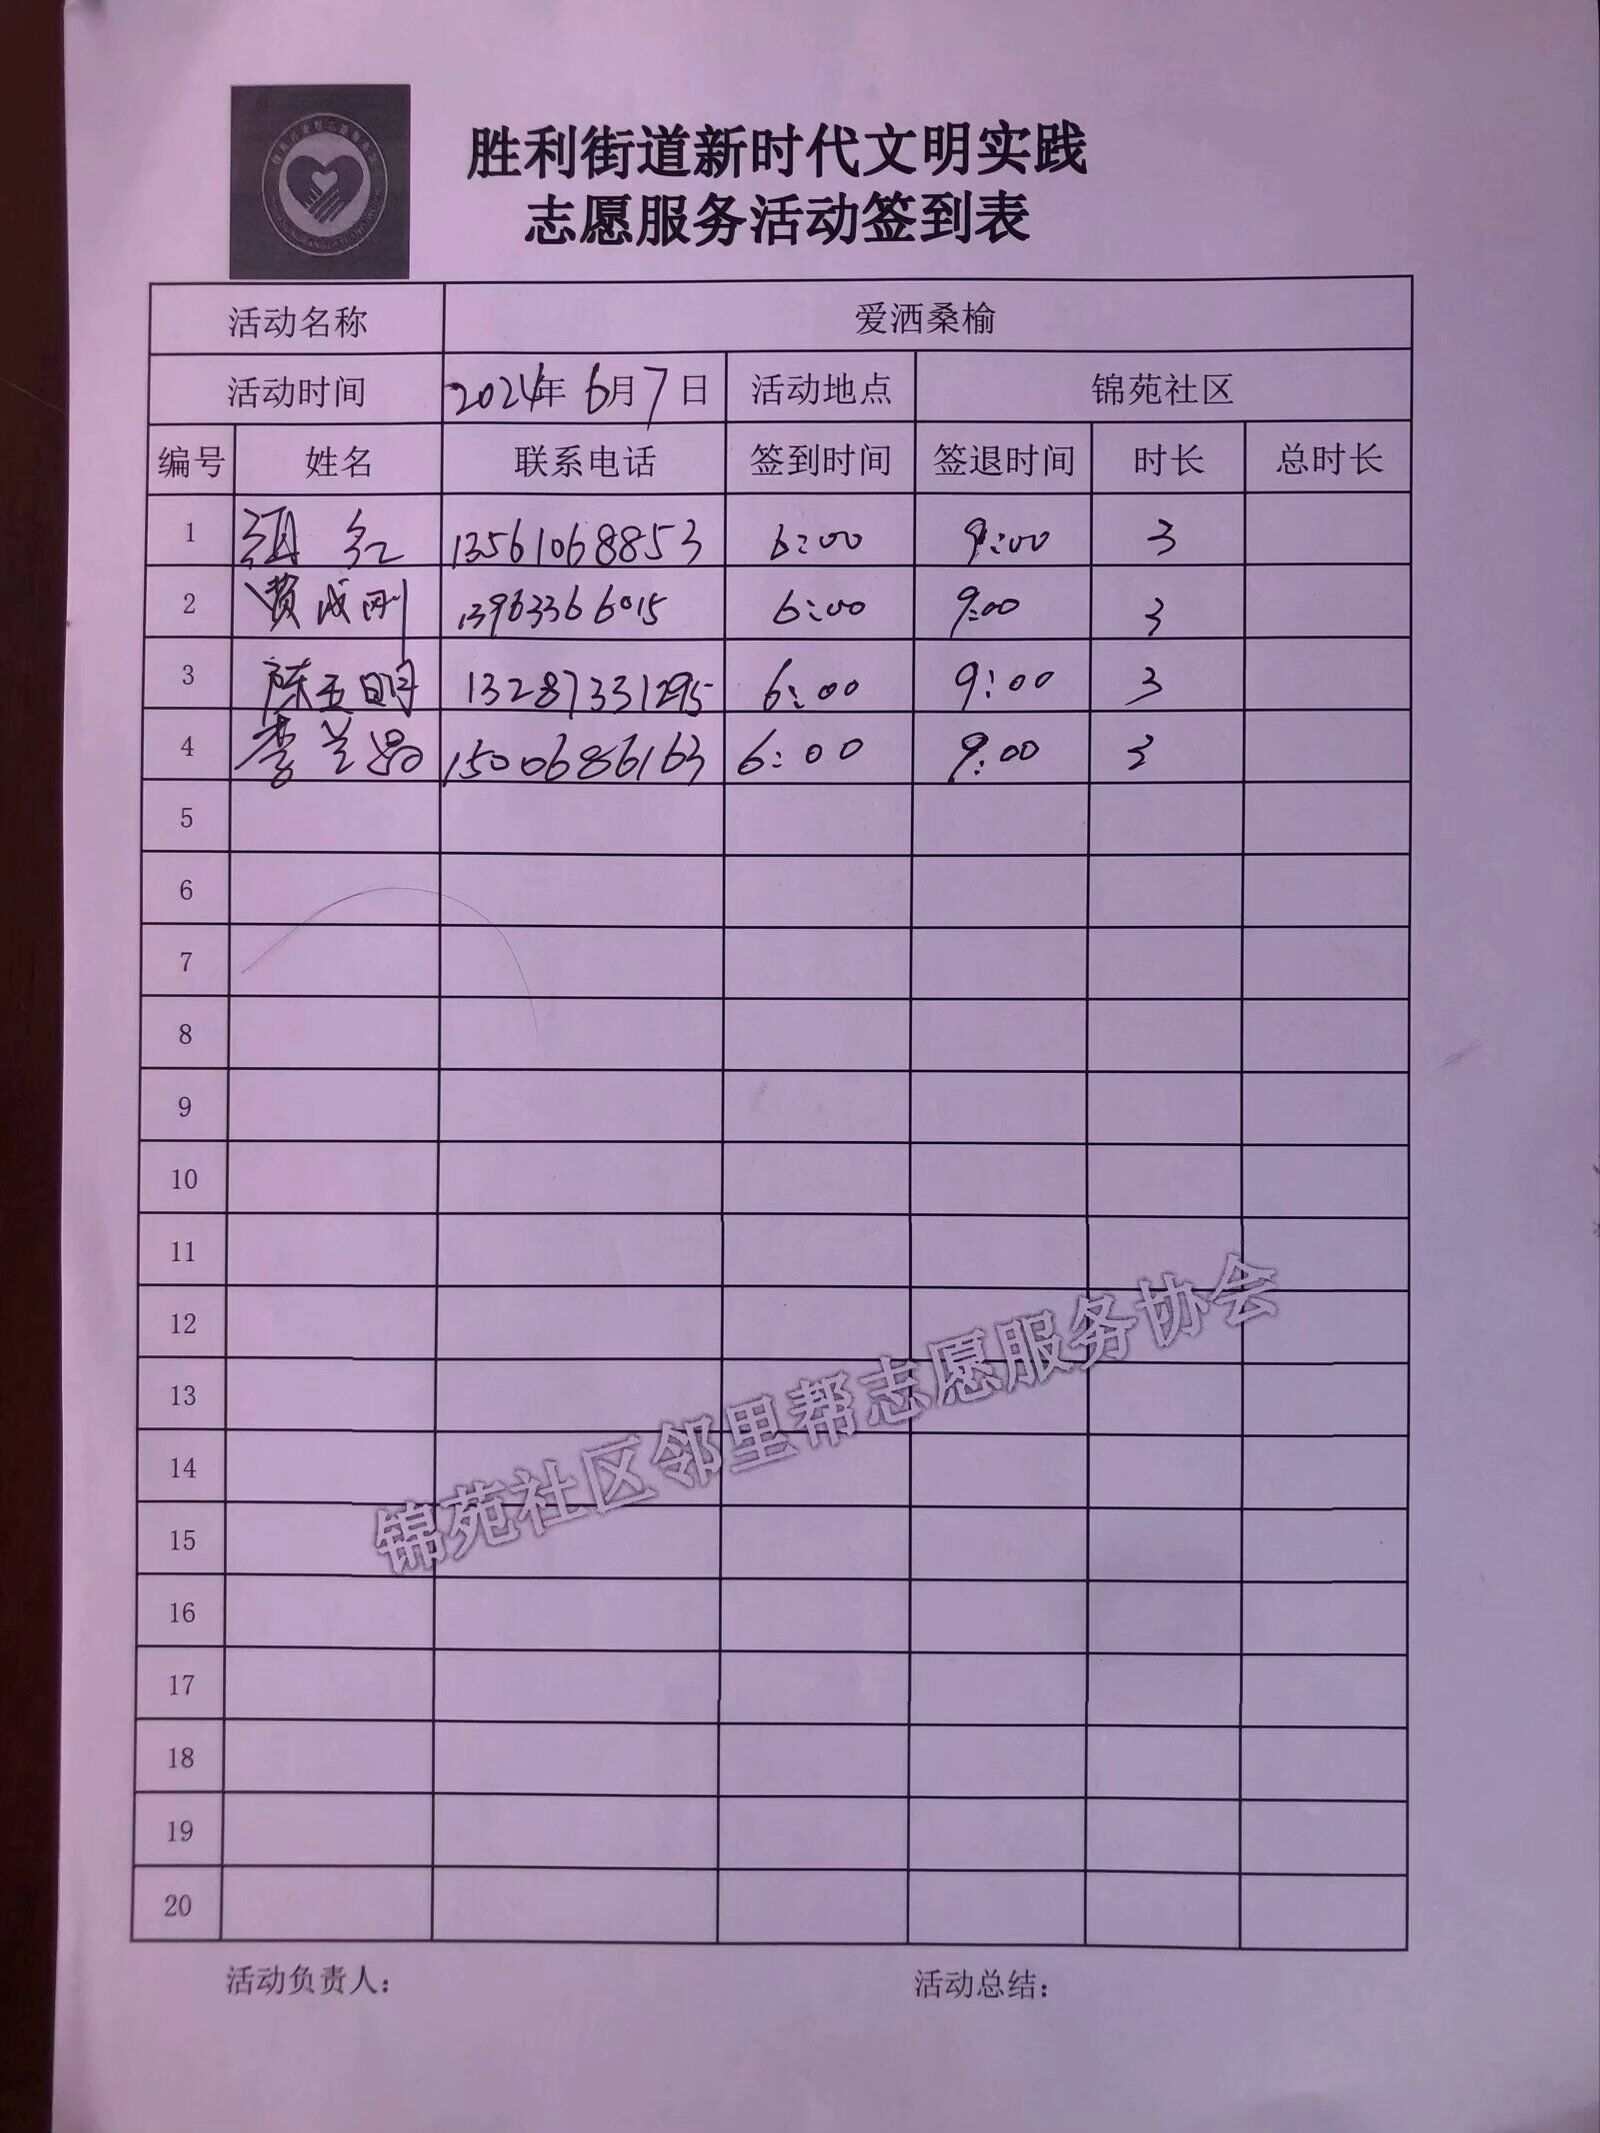 胜利街道新时代文明实践
志愿服务活动签到表
活动名称 爱洒桑榆
活动时间 2024年6月7日 活动地点 锦苑社区
编号 姓名 联系电话 签到时间 签退时间 时长 总时长
1 红 13561068853 6:00 9:00 3
2 费成刚 13963366015 6:00 9:00 3
3 陈玉明 13287331295 6:00 9:00 3
4 李兰 1500686163 6:00 9:00 3
5
6
7
8
9
10
11
12
13
14
15
16
17
18
19
20
锦苑社区邻里帮志愿服务协会
活动负责人： 活动总结：